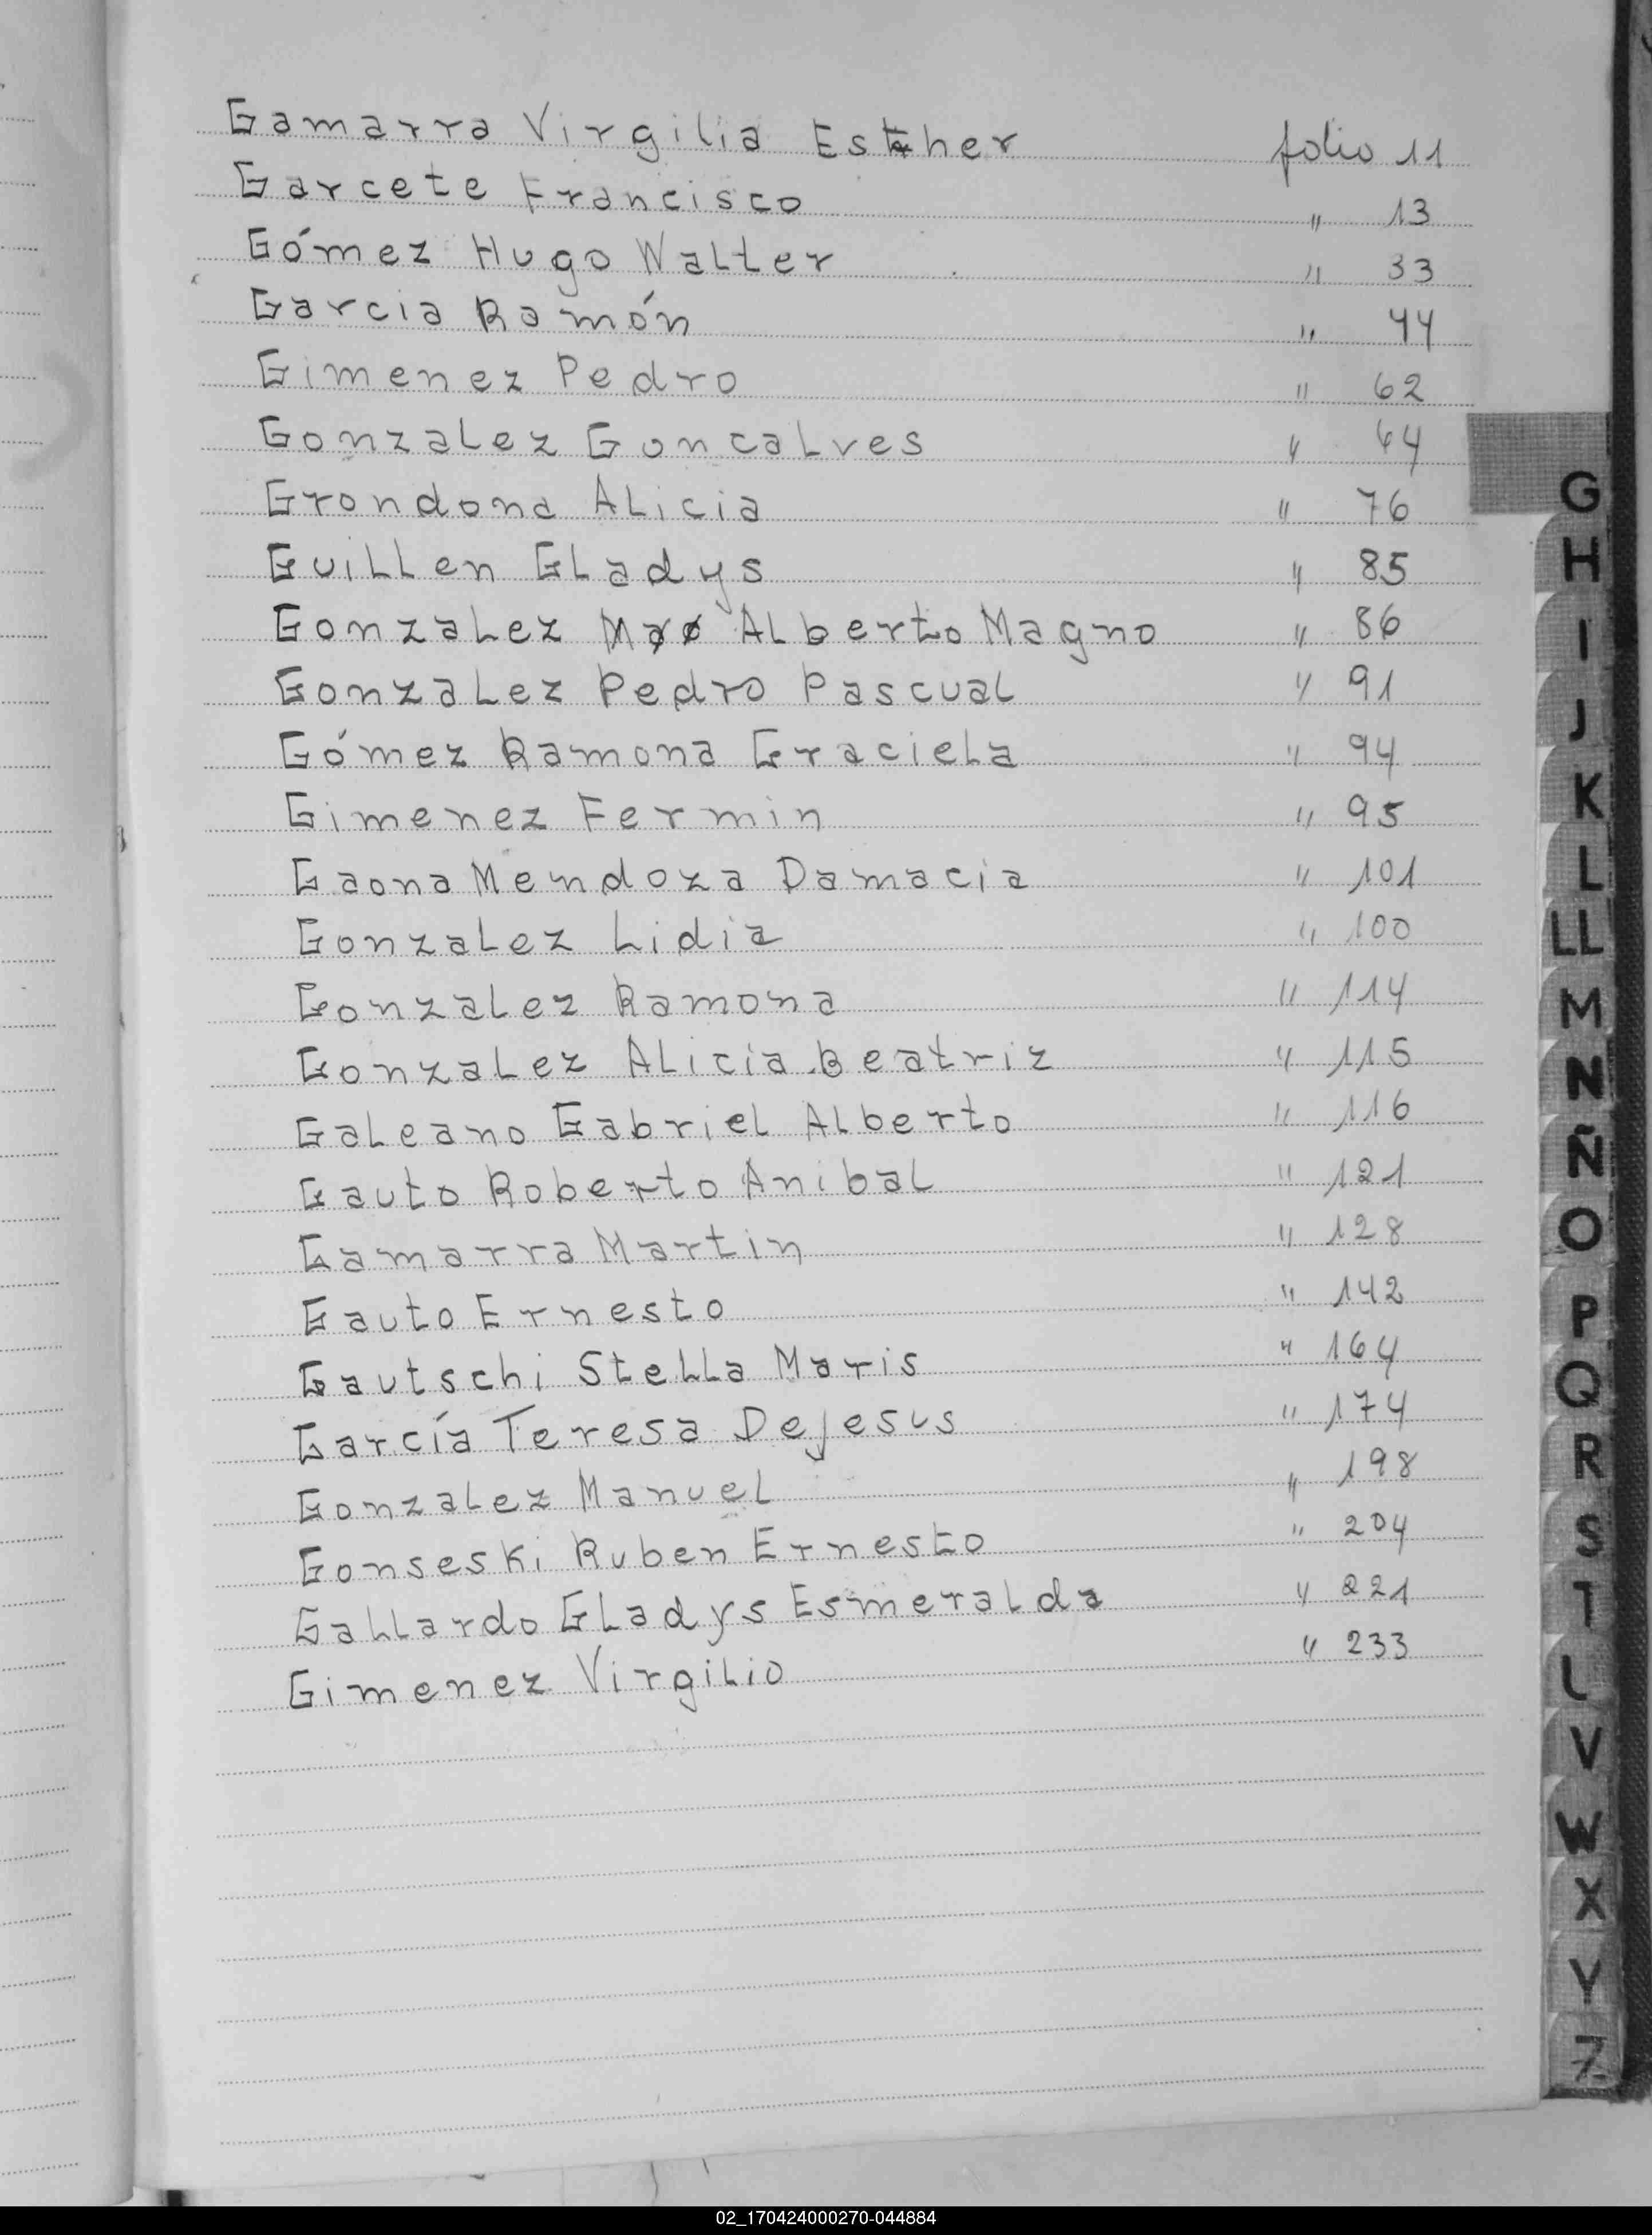 Gamarra Virgilia Esther folio 11
Garcete Francisco " 13
Gómez Hugo Walter " 33
Garcia Ramón " 44
Gimenez Pedro " 62
Gonzalez Goncalves " 64
Grondona Alicia " 76
Guillen Gladys " 85
Gonzalez Alberto Magno " 86
Gonzalez Pedro Pascual " 91
Gómez Ramona Graciela " 94
Gimenez Fermin " 95
Gaona Mendoza Damacia " 101
Gonzalez Lidia " 100
Gonzalez Ramona " 114
Gonzalez Alicia Beatriz " 115
Galeano Gabriel Alberto " 116
Gauto Roberto Anibal " 121
Gamarra Martin " 128
Gauto Ernesto " 142
Gautschi Stella Maris " 164
García Teresa Dejesus " 174
Gonzalez Manuel " 198
Gonseski Ruben Ernesto " 204
Gallardo Gladys Esmeralda " 221
Gimenez Virgilio " 233
G
H
I
J
K
L
LL
M
N
Ñ
O
P
Q
R
S
T
V
W
X
Y
Z
02_170424000270-044884